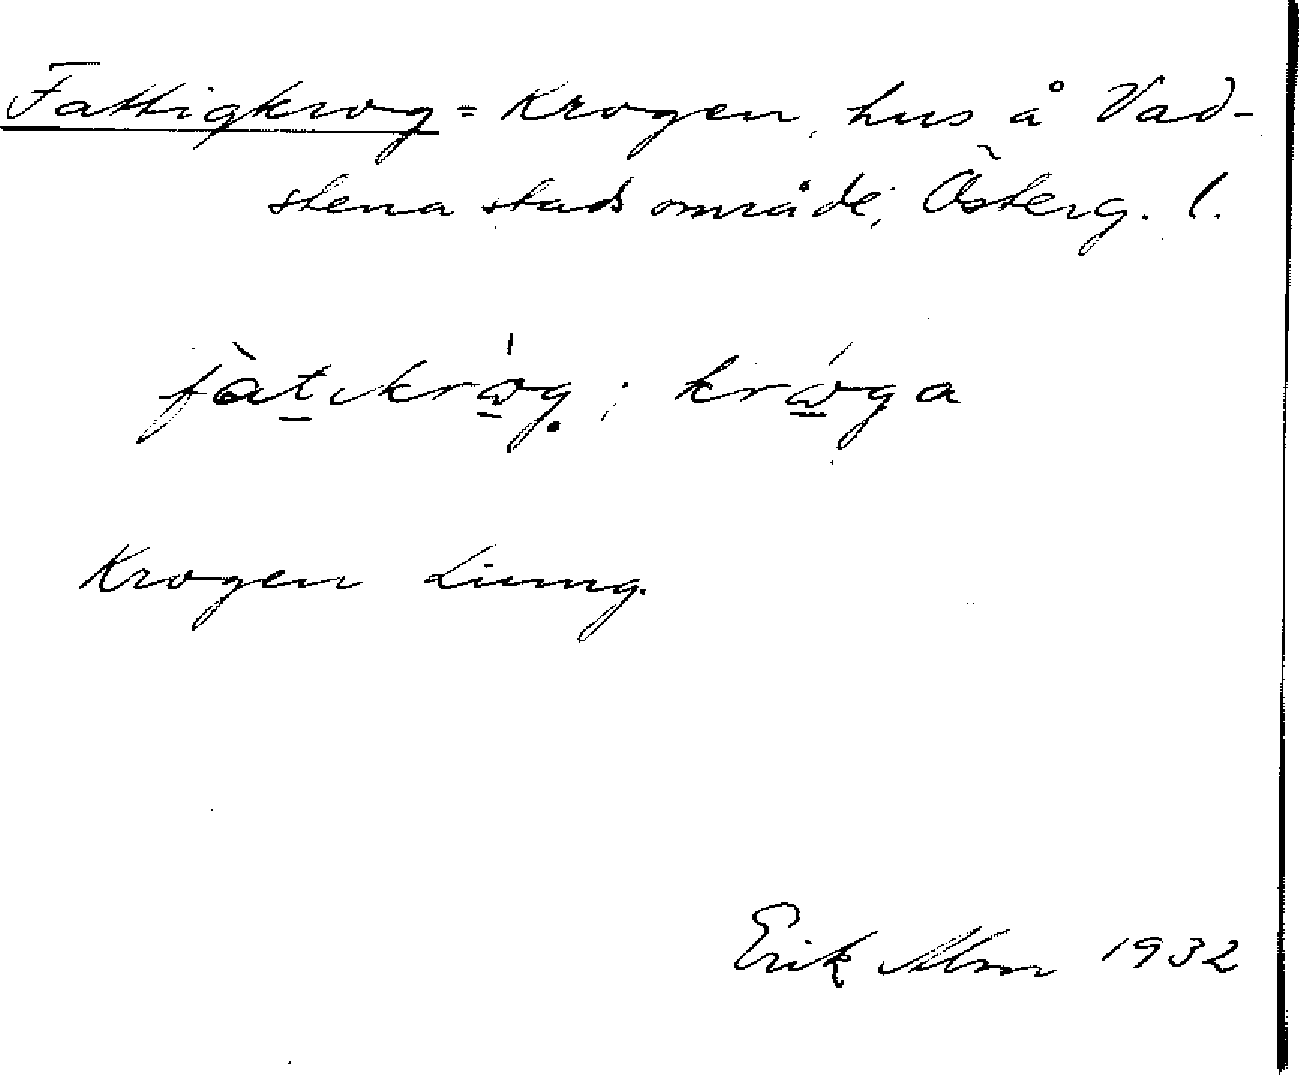 Fattigkrog = Krogen, hus å Vad-
stena stadsområde, Österg. l.
fàt̲ıkrώ̲g̣ ; krώ̲ga
Krogen Liung.
Erik Alm 1932